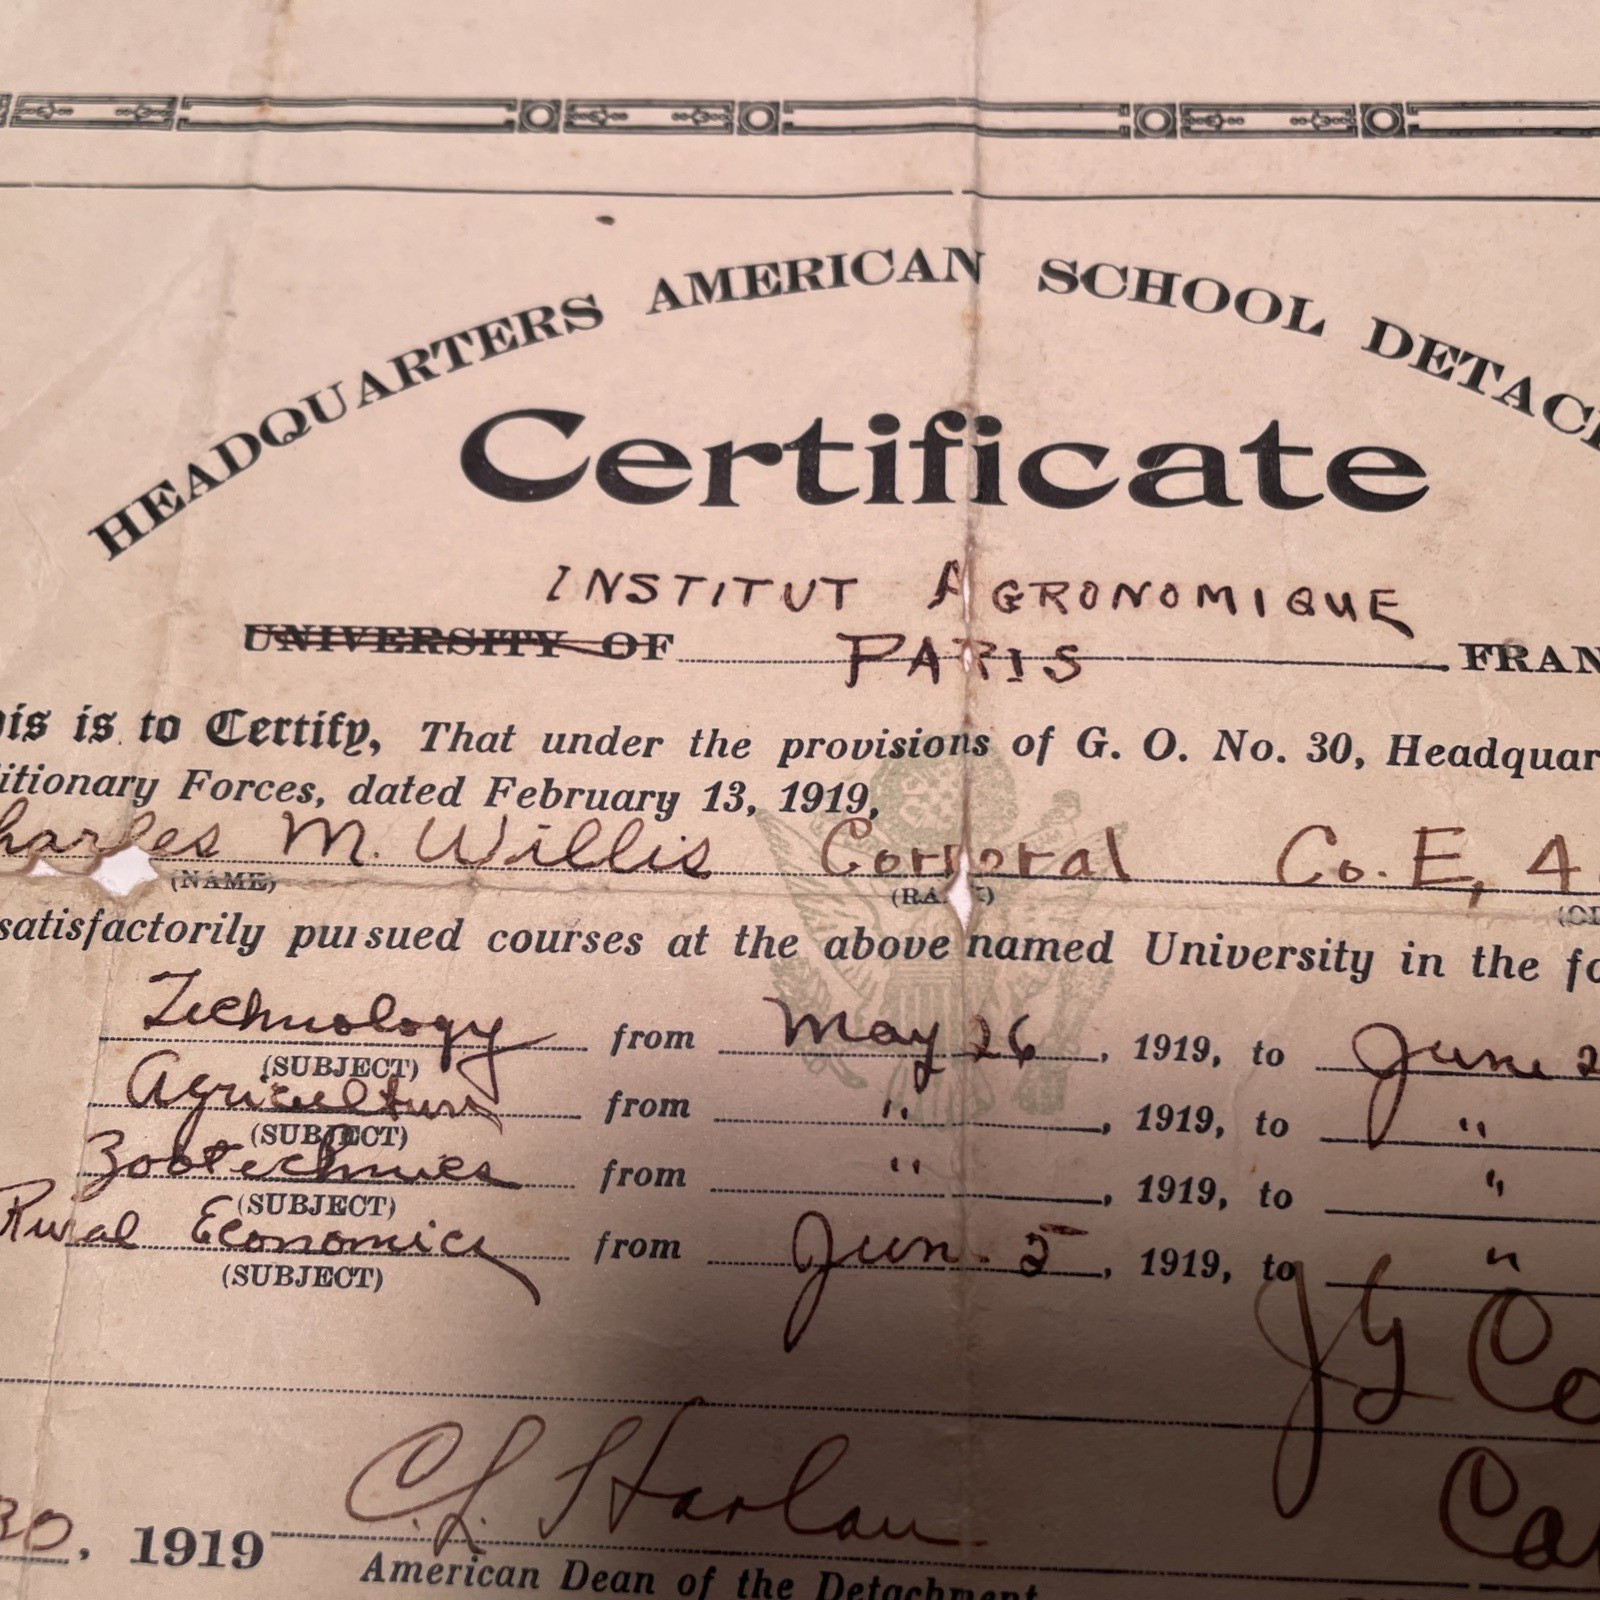 HEADQUARTERS AMERICAN SCHOOL DETAC
Certificate
INSTITUT AGRONOMIQUE
UNIVERSITY OF PARIS FRAN
his is to Certify, That under the provisions of G. O. No. 30, Headquar
itionary Forces, dated February 13, 1919,
harles M. Willis Corporal Co. E, 4
(NAME) (RANK)
satisfactorily pursued courses at the above named University in the fo
Technology from May 26, 1919, to June 2
(SUBJECT)
Agriculture from ", 1919, to "
(SUBJECT)
Zootechnics from ", 1919, to "
(SUBJECT)
Rural Economics from Jun. 2, 1919, to "
(SUBJECT)
J G Co
C. L. Harlan Ca
30, 1919
American Dean of the Detachment